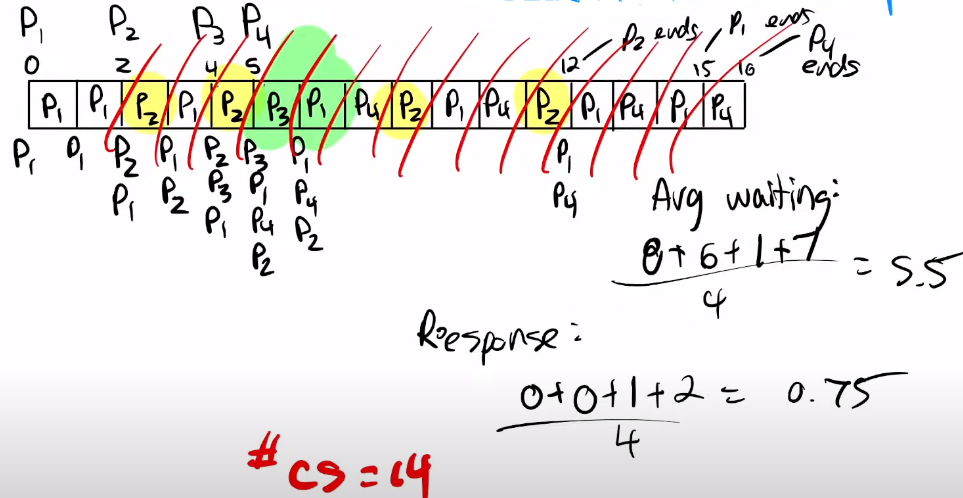 P1 P2 P3 P4
0 2 4 5 12 P2 ends 15 P1 ends 16 P4 ends
P1 P1 P2 P1 P2 P3 P1 P4 P2 P1 P4 P2 P1 P4 P1 P4
P1 P1 P2 P1 P2 P3 P1 P1
P1 P2 P3 P1 P4 P4
P1 P4 P2
P2
Avg waiting:
8+6+1+7
4
= 5.5
Response:
0+0+1+2 = 0.75
4
# CS = 14